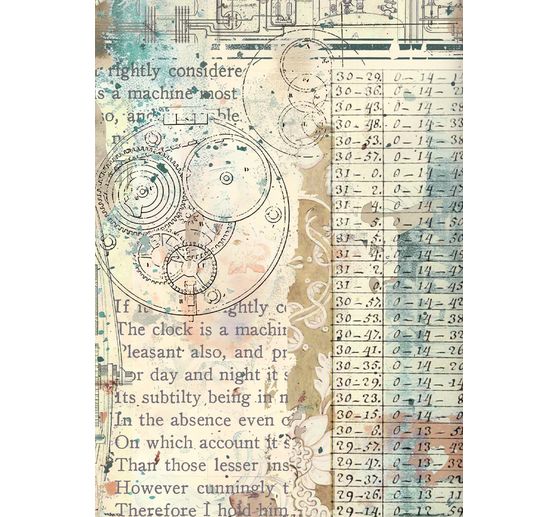 rightly considere
s a machine most
o, and able.
If ghtly c
The clock is a machin
Pleasant also, and pr
or day and night it s
Its subtilty being in n
In the absence even o
On which account it's
Than those lesser ins
However cunningly t
Therefore I hold him
30-29. 0-14-
30-36. 0-14-2
30-43. 0-14-28
30-48. 0-14-33
30-53. 0-14-38
30-57. 0-14-42
31-0. 0-14-4
31-2. 0-14-47
31-4. 0-14-49
31-5. 0-14-50
31-5. 0-14-50
31-4. 0-14-49
31-2. 0-14-47
31-0. 0-14-45
30-57. 0-14-42
30-53. 0-14-38
30-47. 0-14-32
30-41. 0-14-26
30-35. 0-14-20
30-29. 0-14-14
30-23. 0-14-8
30-15. 0-14-0
30-6. 0-13-51
29-57. 0-13-42
29-47. 0-13-3
29-37. 0-13-2
29-26. 0-13-11
29-14. 0-12-5